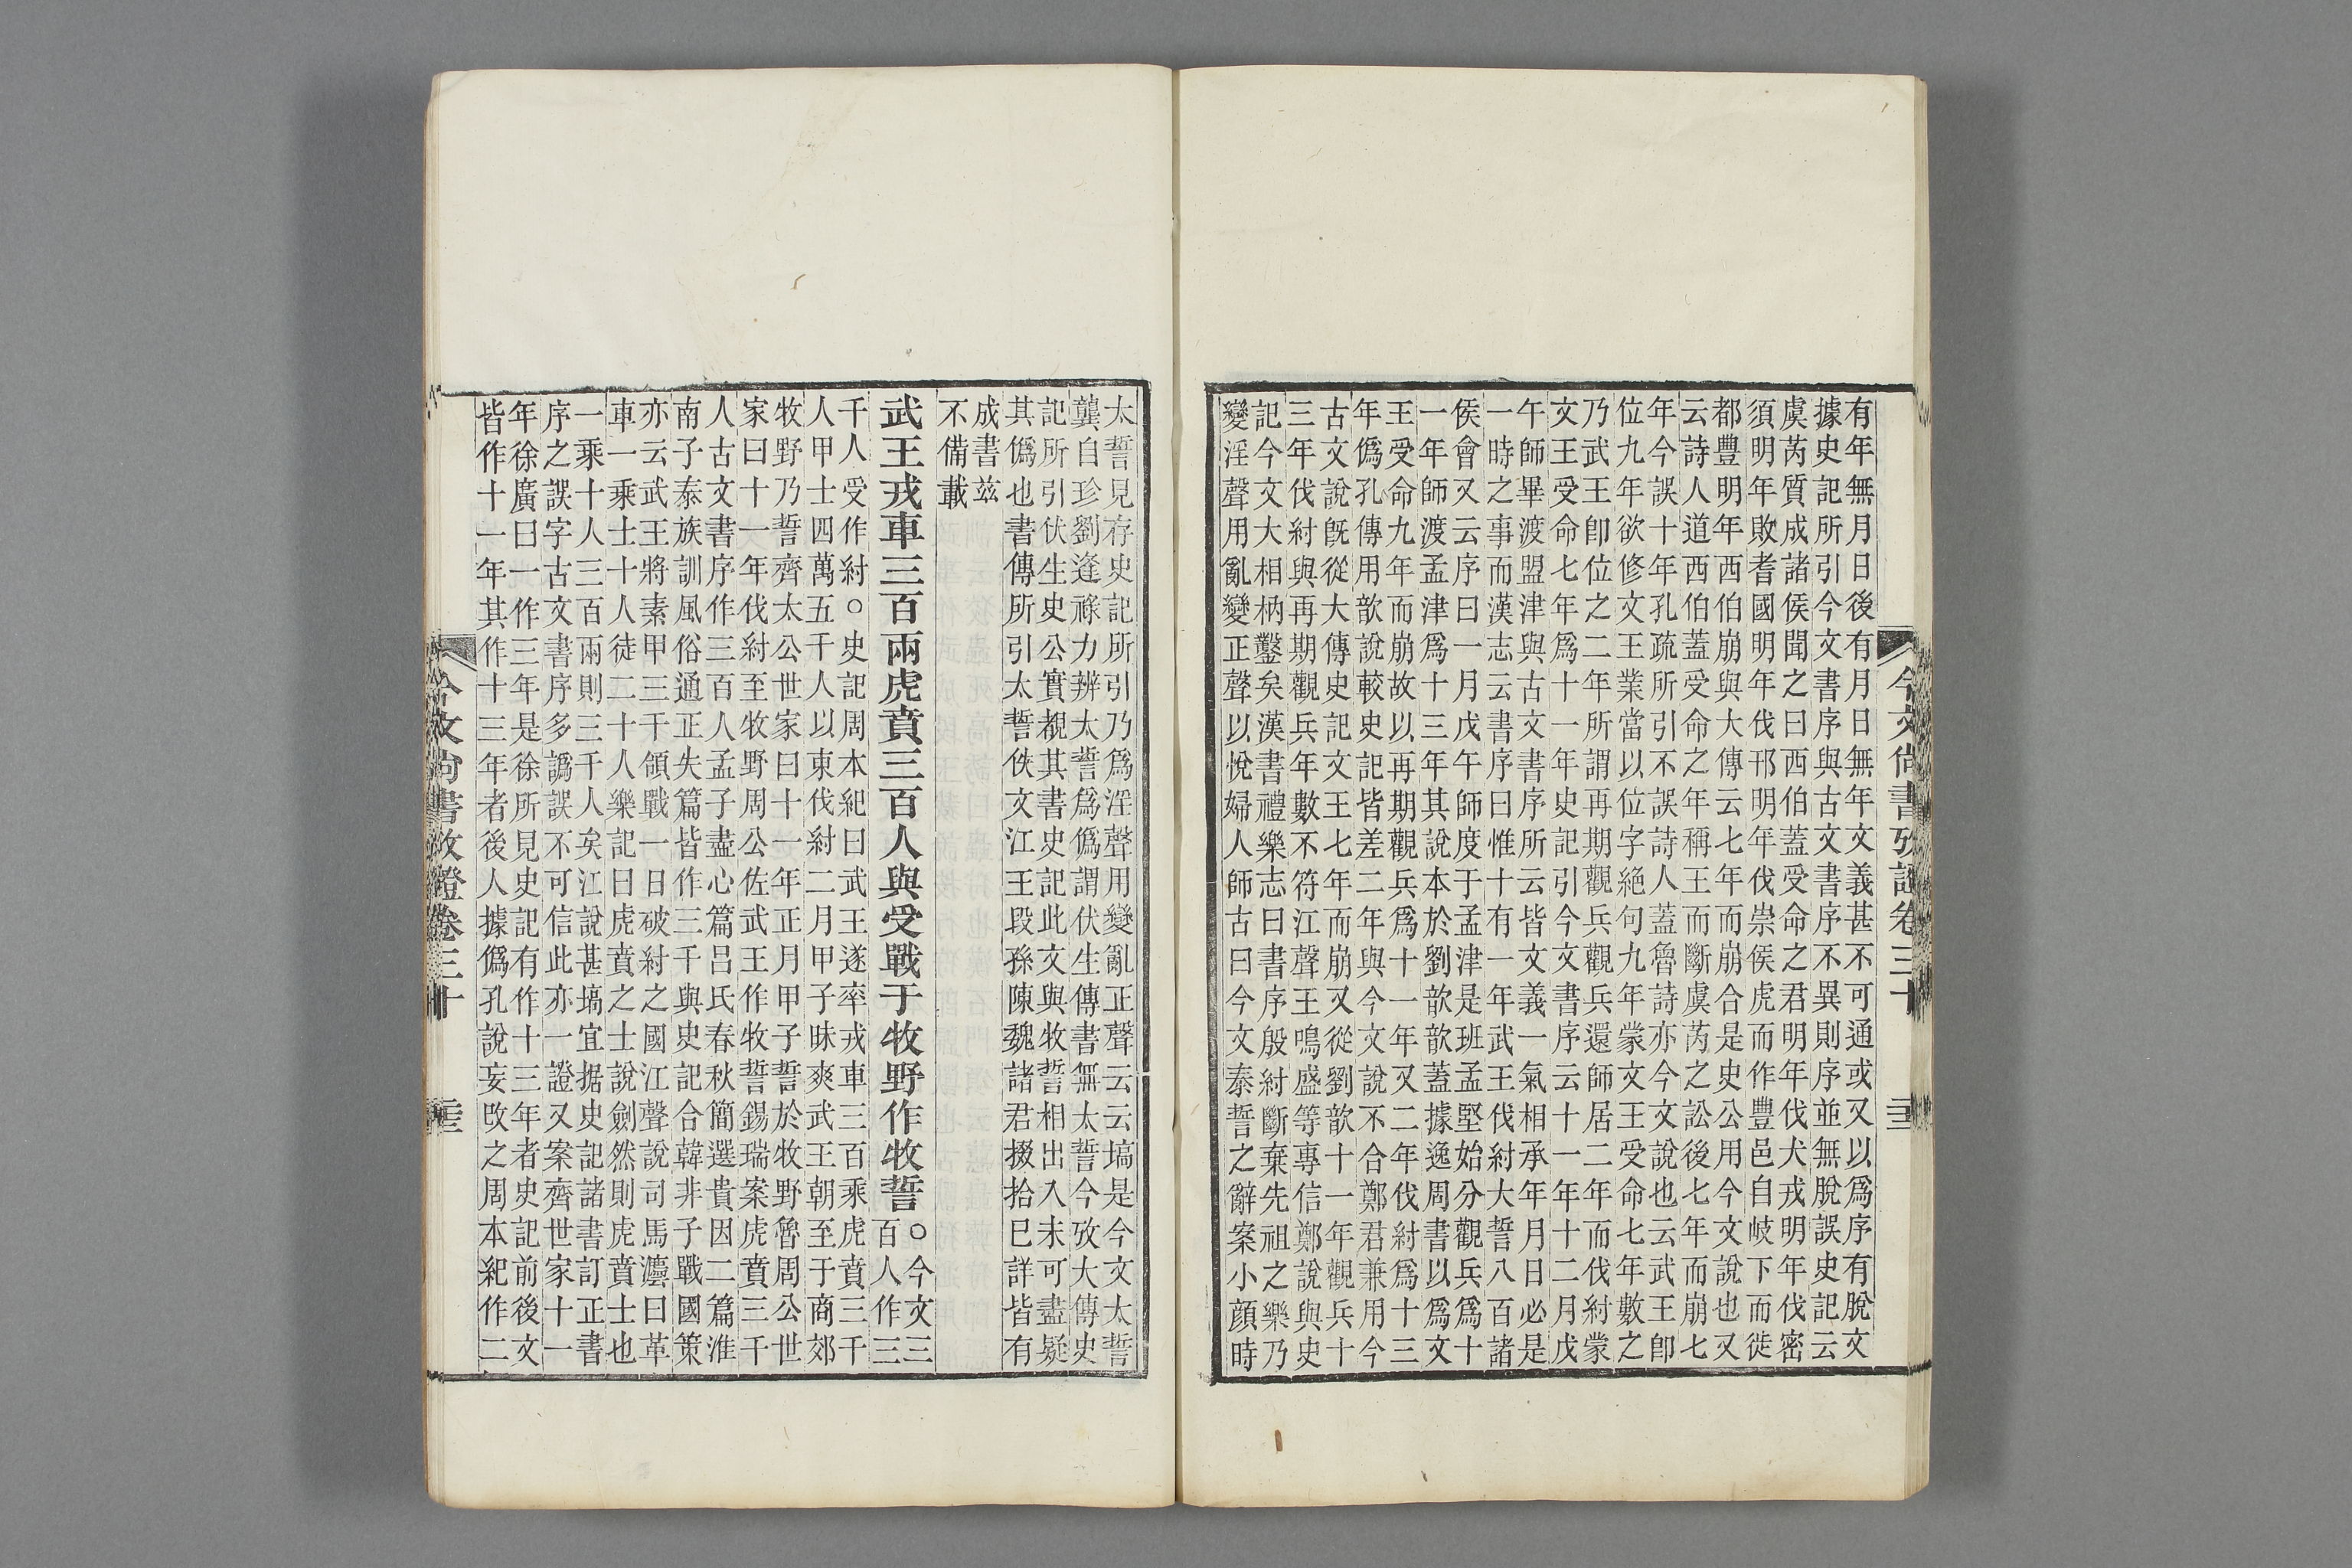 今文尚書攷證卷三十
有年無月日後有月日無年文義甚不可通或又以爲序有脫文
據史記所引今文書序與古文書序不異則序並無脫誤史記云
虞芮質成諸侯聞之曰西伯蓋受命之君明年伐犬戎明年伐密
須明年敗耆國明年伐邘明年伐崇侯虎而作豐邑自岐下而徙
都豐明年西伯崩與大傳云七年而崩合是史公用今文說也又
云詩人道西伯蓋受命之年稱王而斷虞芮之訟後七年而崩七
年今誤十年孔疏所引不誤詩人蓋魯詩亦今文說也云武王卽
位九年欲修文王業當以位字絕句九年蒙文王受命七年數之
乃武王卽位之二年所謂再期觀兵觀兵還師居二年而伐紂蒙
文王受命七年爲十一年史記引今文書序云十一年十二月戊
午師畢渡盟津與古文書序所云皆文義一氣相承年月日必是
一時之事而漢志云書序曰惟十有一年武王伐紂大誓八百諸
侯會又云序曰一月戊午師度于孟津是班孟堅始分觀兵爲十
一年師渡孟津爲十三年其說本於劉歆歆蓋據逸周書以爲文
王受命九年而崩故以再期觀兵爲十一年又二年伐紂爲十三
年僞孔傳用歆說較史記皆差二年與今文說不合鄭君兼用今
古文說旣從大傳史記文王七年而崩又從劉歆十一年觀兵十
三年伐紂與再期觀兵年數不符江聲王鳴盛等專信鄭說與史
記今文大相枘鑿矣漢書禮樂志曰書序殷紂斷棄先祖之樂乃
變淫聲用亂變正聲以悅婦人師古曰今文泰誓之辭案小顏時
太誓見存史記所引乃爲淫聲用變亂正聲云云塙是今文太誓
龔自珍劉逢祿力辨太誓爲僞謂伏生傳書無太誓今攷大傳史
記所引伏生史公實覩其書史記此文與牧誓相出入未可盡疑
其僞也書傳所引太誓佚文江王段孫陳魏諸君掇拾已詳皆有
成書茲
不備載
武王戎車三百兩虎賁三百人與受戰于牧野作牧誓○今文三
百人作三
千人受作紂○史記周本紀曰武王遂率戎車三百乘虎賁三千
人甲士四萬五千人以東伐紂二月甲子昧爽武王朝至于商郊
牧野乃誓齊太公世家曰十一年正月甲子誓於牧野魯周公世
家曰十一年伐紂至牧野周公佐武王作牧誓錫瑞案虎賁三千
人古文書序作三百人孟子盡心篇呂氏春秋簡選貴因二篇淮
南子泰族訓風俗通正失篇皆作三千與史記合韓非子戰國策
亦云武王將素甲三千領戰一日破紂之國江聲說司馬灋曰革
車一乘士十人徒二十人樂記曰虎賁之士說劍然則虎賁士也
一乘十人三百兩則三千人矣江說甚塙宜据史記諸書訂正書
序之誤字古文書序多譌誤不可信此亦一證又案齊世家十一
年徐廣曰一作三年是徐所見史記有作十三年者史記前後文
皆作十一年其作十三年者後人據僞孔說妄改之周本紀作二
今文尚書攷證卷三十